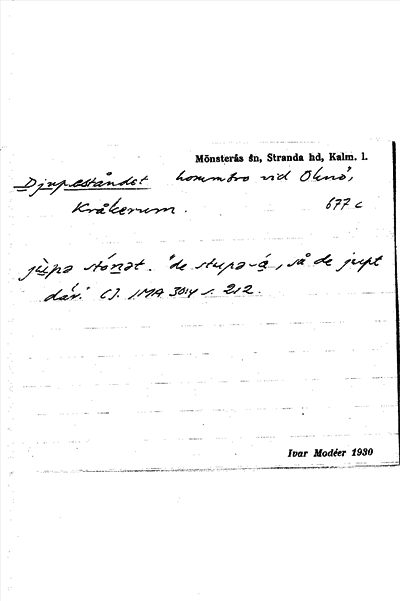 Mönsterås sn, Stranda hd, Kalm. l.
Djupeståndet hommbro vid Oknö,
Kråkerum. 677 c
jùpə stónət. "de stupə-å, så de jupt
där." Cf. IMA 3014 s. 212.
Ivar Modéer 1930